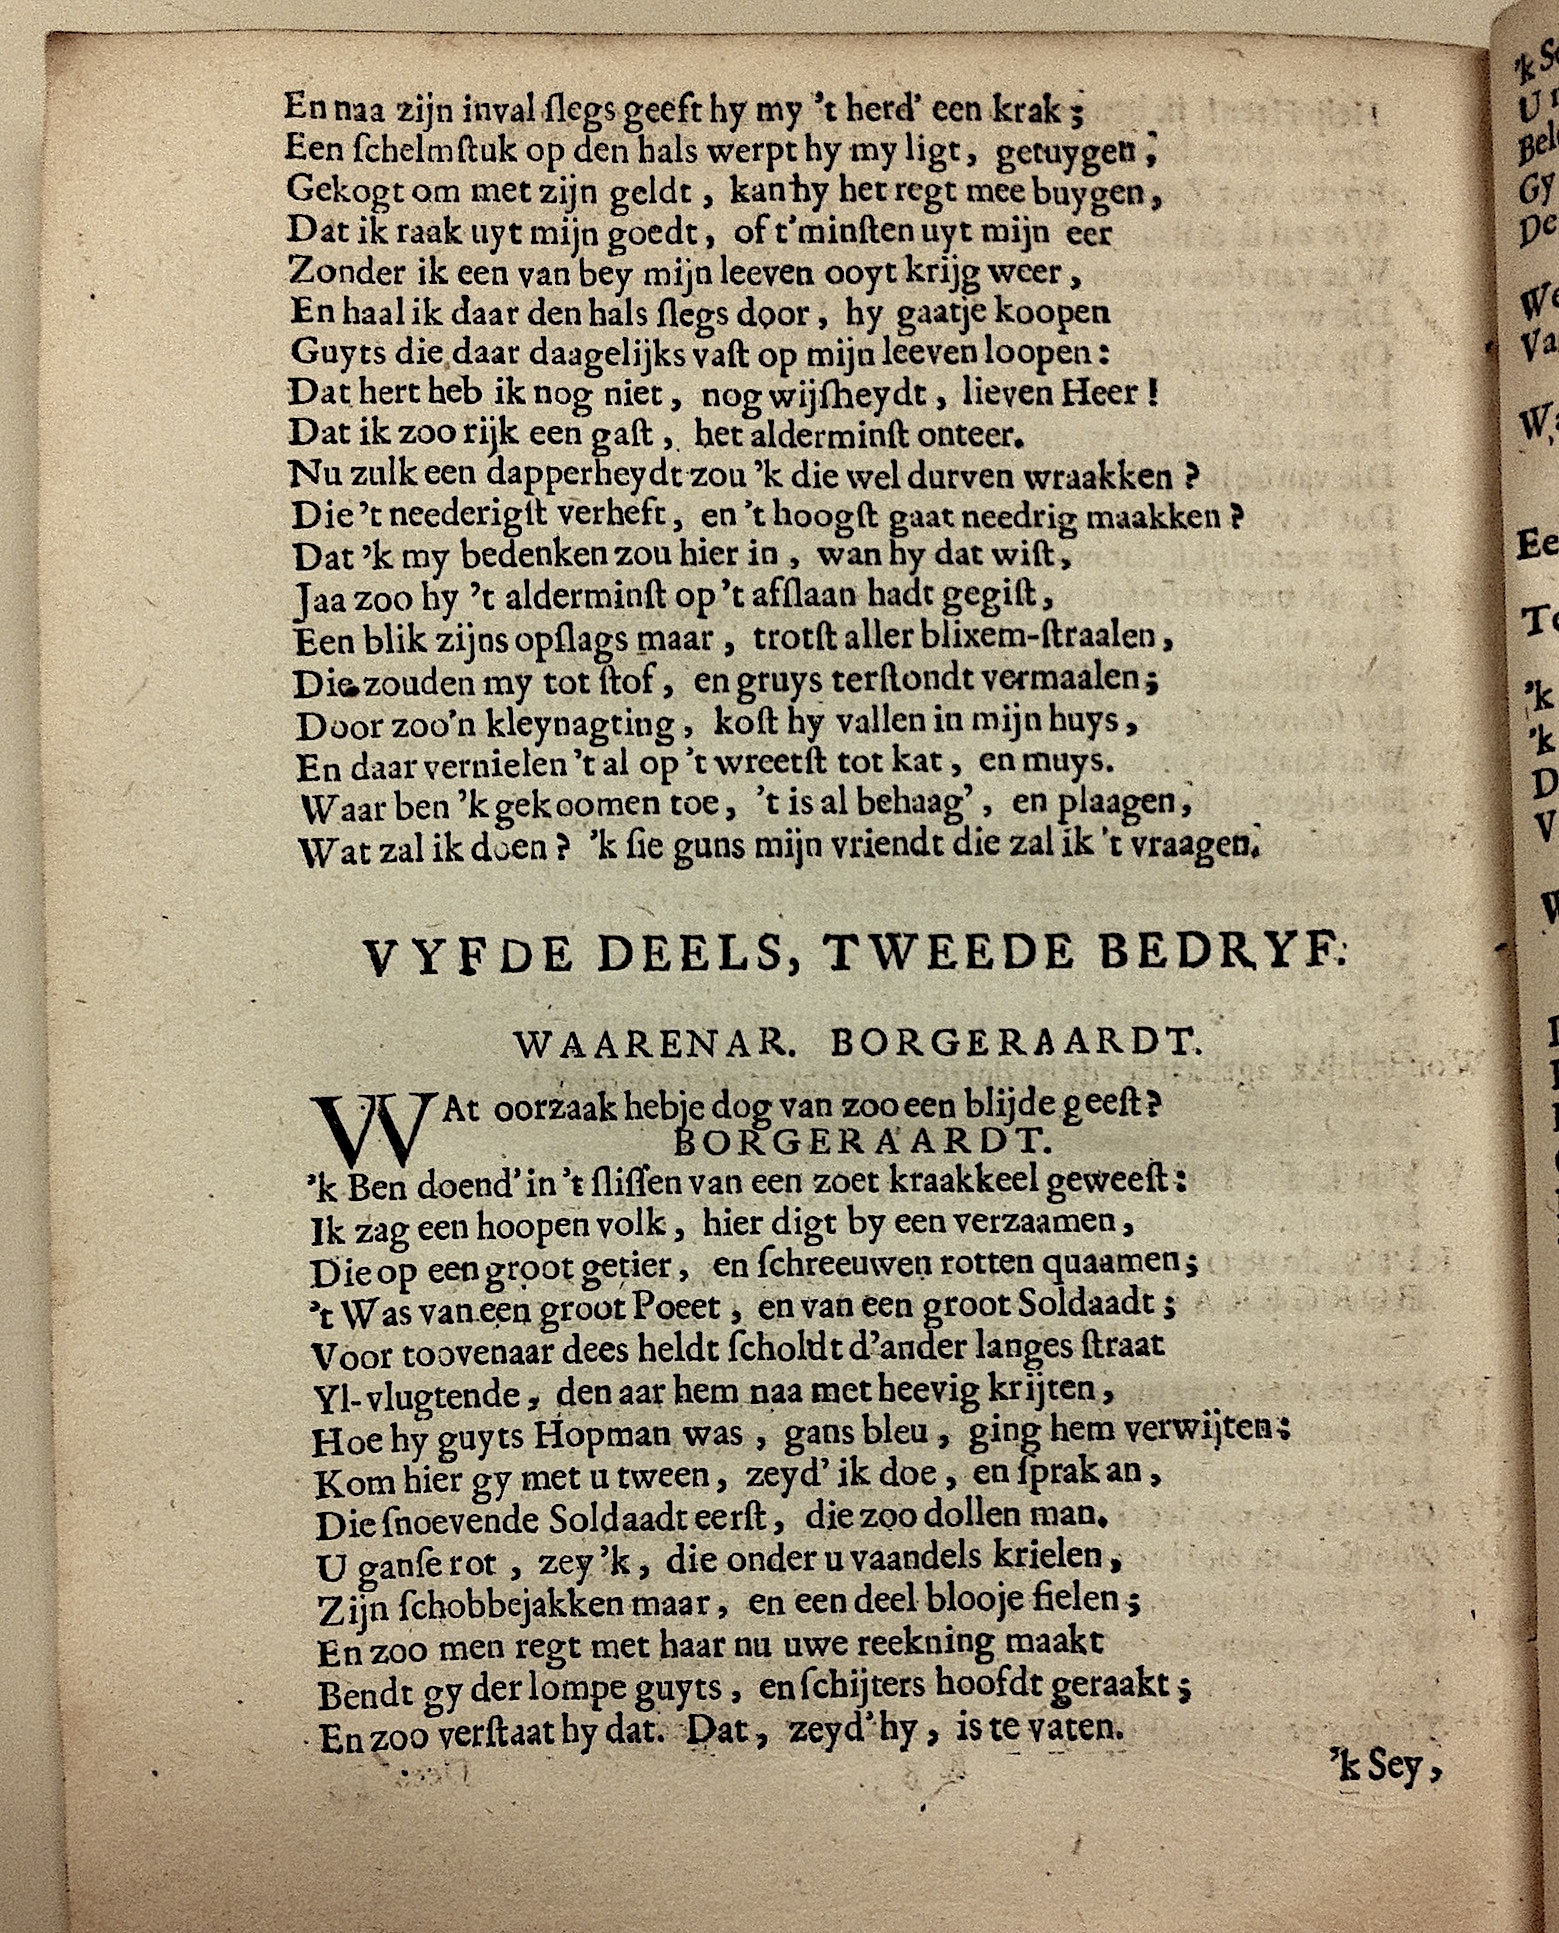 En naa zijn inval ſlegs geeft hy my 't herd' een krak;
Een ſchelmſtuk op den hals werpt hy my ligt, getuygen;
Gekogt om met zijn geldt, kan hy het regt mee buygen,
Dat ik raak uyt mijn goedt, of t'minſten uyt mijn eer
Zonder ik een van bey mijn leeven ooyt krijg weer,
En haal ik daar den hals ſlegs door, hy gaatje koopen
Guyts die daar daagelijks vaſt op mijn leeven loopen:
Dat hert heb ik nog niet, nog wijſheydt, lieven Heer!
Dat ik zoo rijk een gaſt, het alderminſt onteer.
Nu zulk een dapperheydt zou 'k die wel durven wraakken?
Die 't neederigſt verheft, en 't hoogſt gaat needrig maakken?
Dat 'k my bedenken zou hier in, wan hy dat wiſt,
Jaa zoo hy 't alderminſt op 't afſlaan hadt gegiſt,
Een blik zijns opſlags maar, trotſt aller blixem-ſtraalen,
Die zouden my tot ſtof, en gruys terſtondt vermaalen;
Door zoo'n kleynagting, koſt hy vallen in mijn huys,
En daar vernielen 't al op 't wreetſt tot kat, en muys.
Waar ben 'k gekoomen toe, 't is al behaag', en plaagen,
Wat zal ik doen? 'k ſie guns mijn vriendt die zal ik 't vraagen.
VYFDE DEELS, TWEEDE BEDRYF.
WAARENAR. BORGERAARDT.
WAt oorzaak hebje dog van zoo een blijde geeſt?
BORGERAARDT.
'k Ben doend' in 't ſliſſen van een zoet kraakkeel geweeſt:
Ik zag een hoopen volk, hier digt by een verzaamen,
Die op een groot getier, en ſchreeuwen rotten quaamen;
't Was van een groot Poeet, en van een groot Soldaadt;
Voor toovenaar dees heldt ſcholdt d'ander langes ſtraat
Yl-vlugtende, den aar hem naa met heevig krijten,
Hoe hy guyts Hopman was, gans bleu, ging hem verwijten:
Kom hier gy met u tween, zeyd' ik doe, en ſprak an,
Die ſnoevende Soldaadt eerſt, die zoo dollen man.
U ganſe rot, zey 'k, die onder u vaandels krielen,
Zijn ſchobbejakken maar, en een deel blooje fielen;
En zoo men regt met haar nu uwe reekning maakt
Bendt gy der lompe guyts, en ſchijters hoofdt geraakt;
En zoo verſtaat hy dat. Dat, zeyd' hy, is te vaten.
'k Sey,